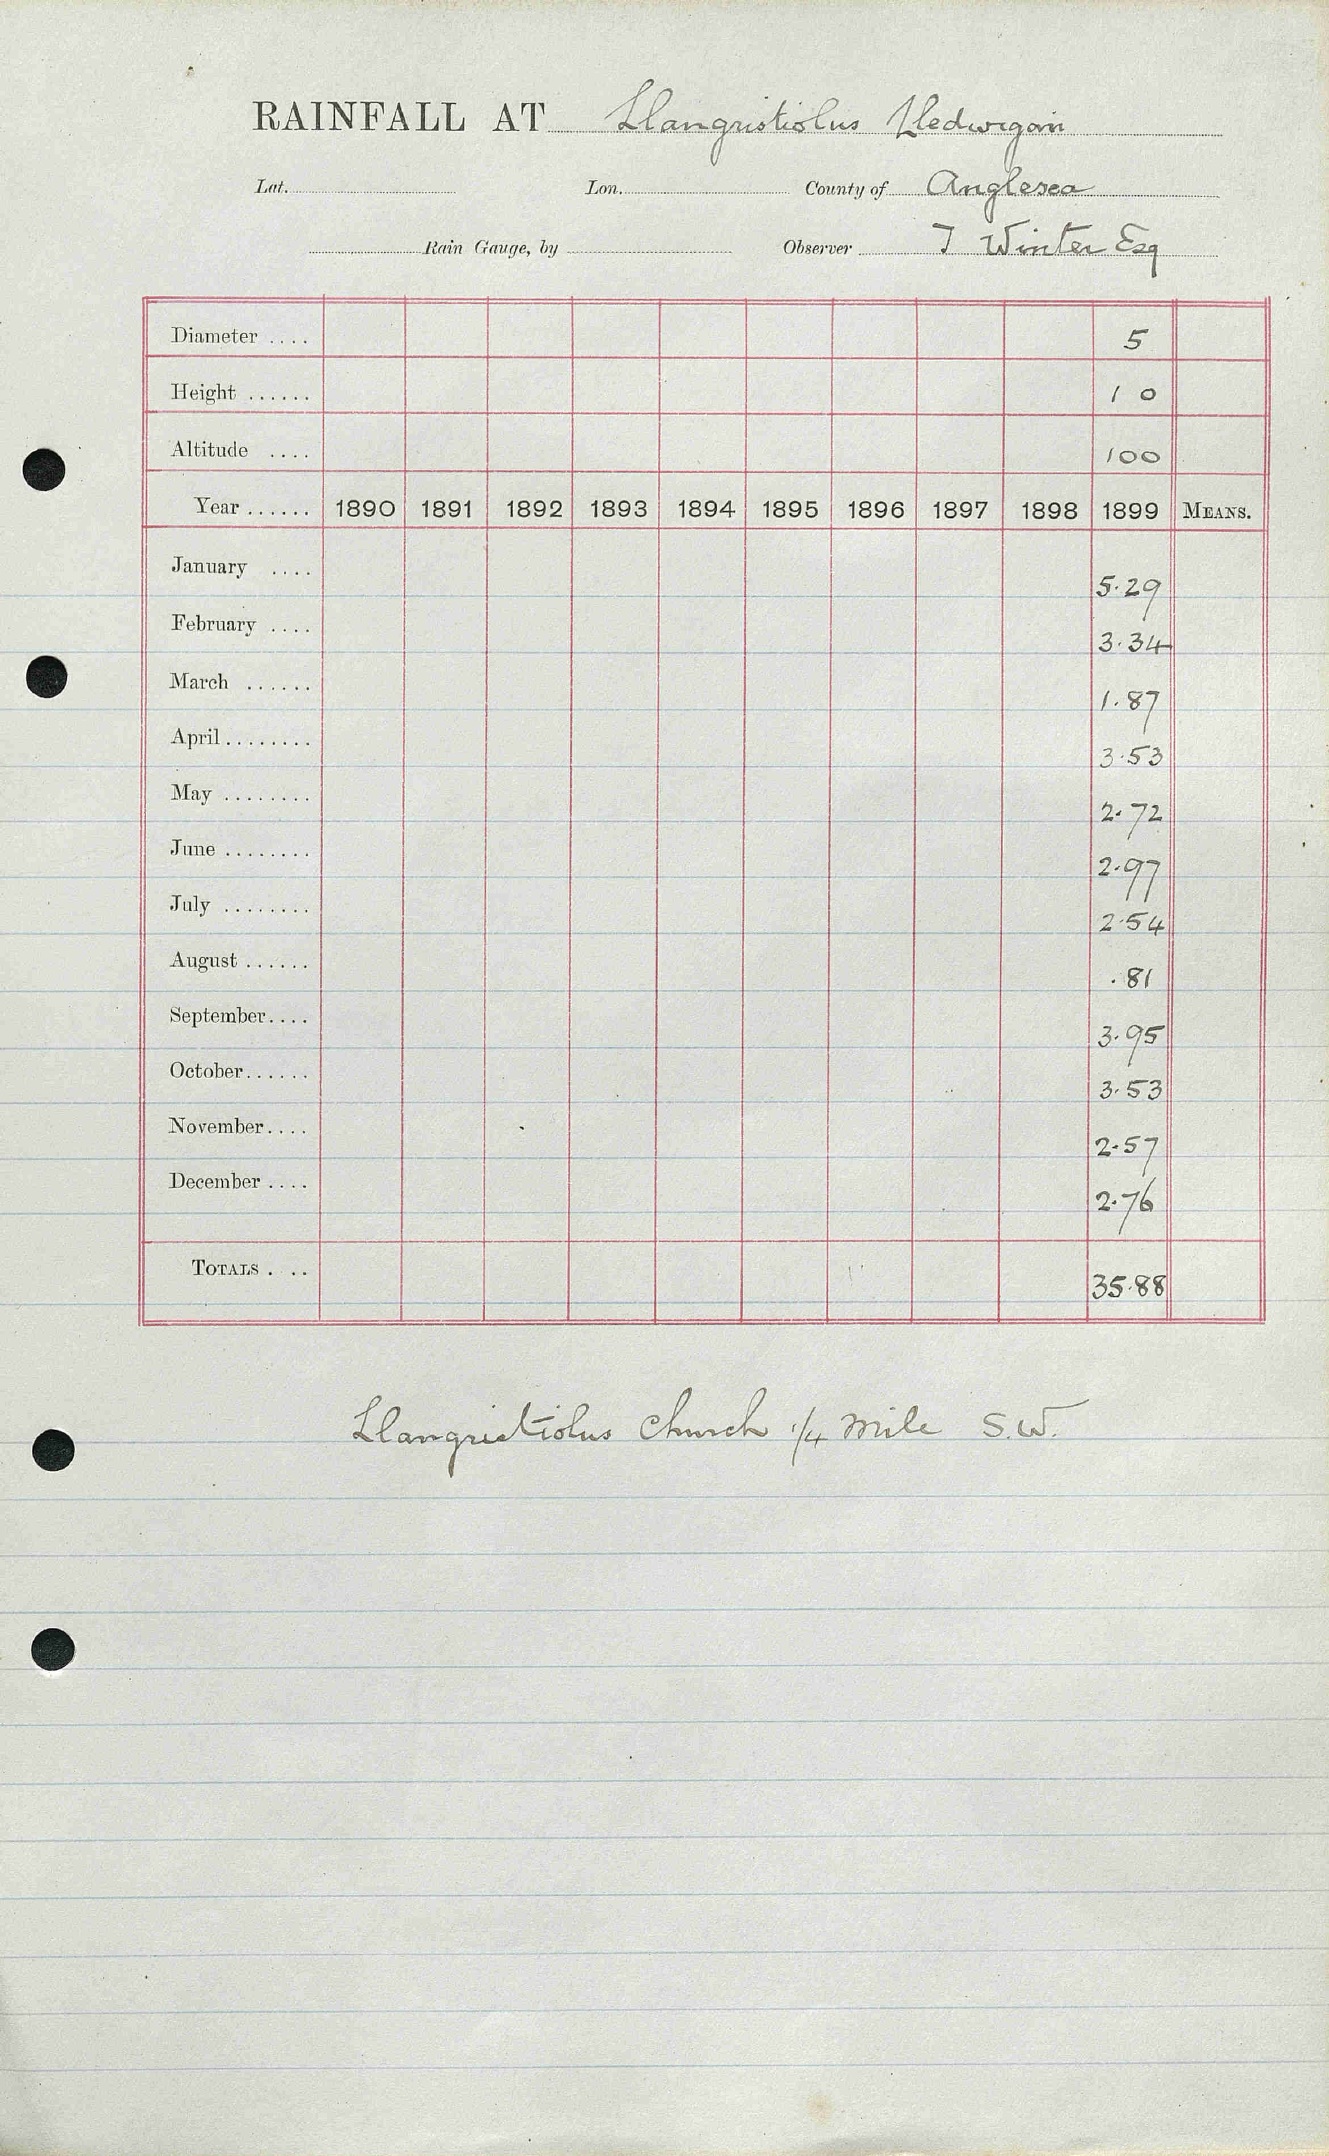 RAINFALL AT Llangristiolus Lledwigan
Lat. Lon. County of Anglesea
Rain Gauge, by Observer T Winter Esq
Diameter .... 5
Height ...... 1 0
Altitude .... 100
Year ...... 1890 1891 1892 1893 1894 1895 1896 1897 1898 1899 MEANS.
January .... 5.29
February .... 3.34
March ...... 1.87
April ........ 3.53
May ........ 2.72
June ........ 2.97
July ........ 2.54
August ...... .81
September .... 3.95
October ...... 3.53
November .... 2.57
December .... 2.76
TOTALS . .. 35.88
Llangristiolus Church 1/4 mile S.W.